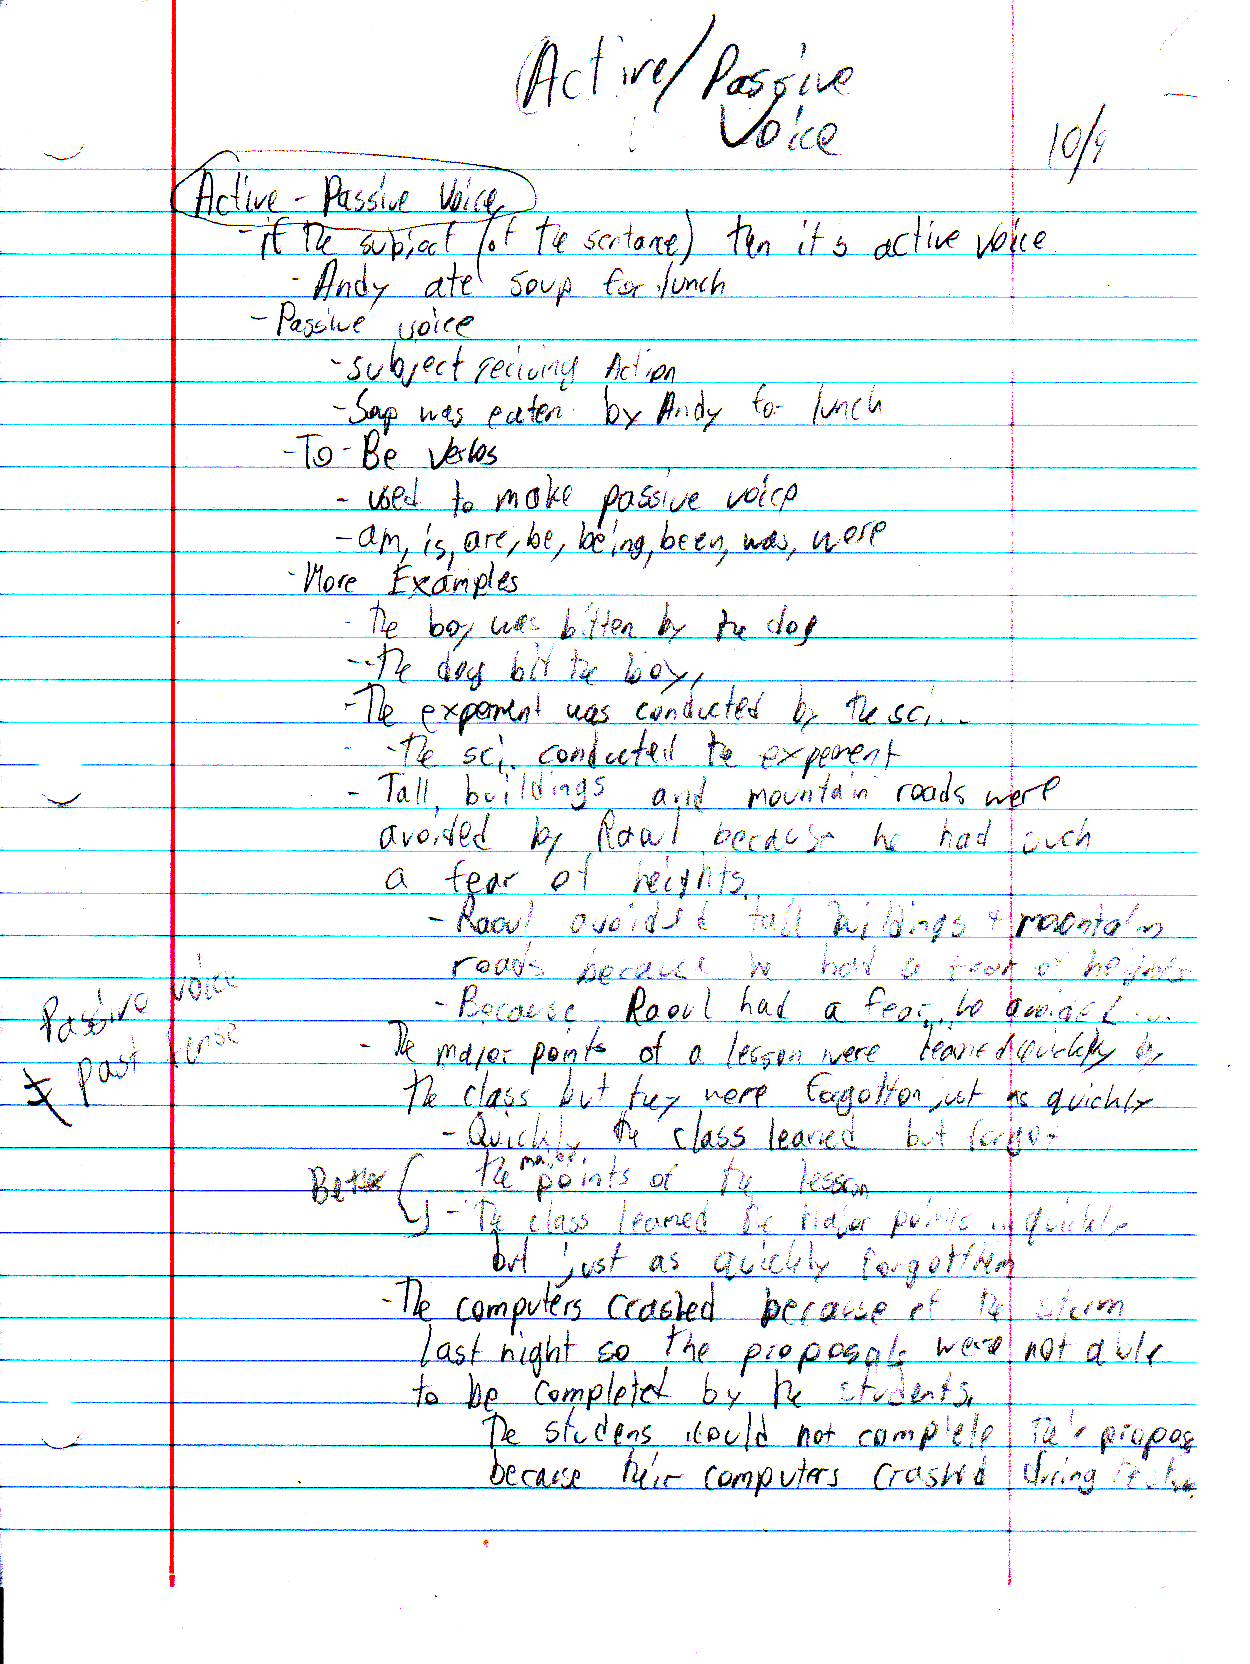 Active/Passive
Voice
10/9
Active - Passive Voice
- if the subject (of the sentance) then it's active voice
- Andy ate soup for lunch
- Passive voice
- subject reciving Action
- Soup was eaten by Andy for lunch
- To - Be verbs
- used to make passive voice
- am, is, are, be, being, been, was, were
- More Examples
- The boy was bitten by the dog
- the dog bit the boy,
- The experment was conducted by the sci...
- the sci. conducted the experment
- Tall, buildings and mountain roads were
avoided by Raoul because he had such
a fear of heights.
- Raoul avoided tall buildings + mountain
roads because he had a fear of heights
- Because Raoul had a fear, he avoided ...
Passive voice
≠ past tense
- The major points of a lesson were learned quickly by
the class but they were forgotton just as quickly
- Quickly the class learned but forgot
the major points of the lesson
Better
- The class learned the major points quickly
but just as quickly forgotten
- The computers crashed because of the storm
last night so the proposals were not able
to be completed by the students.
The studens could not complete their propos
because their computers crashed during